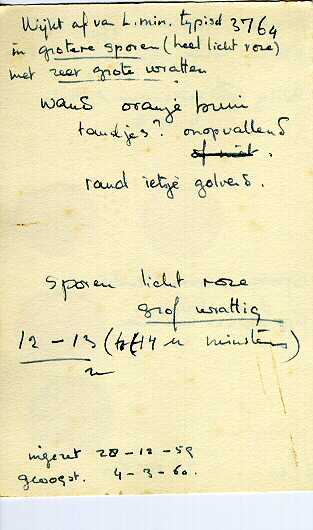 Wijkt af van L. min. typisd 3764
in grotere sporen (heel licht roze)
met zeer grote wratten
wand oranje bruin
tandjes? onopvallend
of niet.
rand ietsje golvend.
sporen licht roze
grof wrattig
12 – 13 (14 u minstens)
u
ingezet 28 – 12 – 59
geoogst. 4 – 3 – 60.